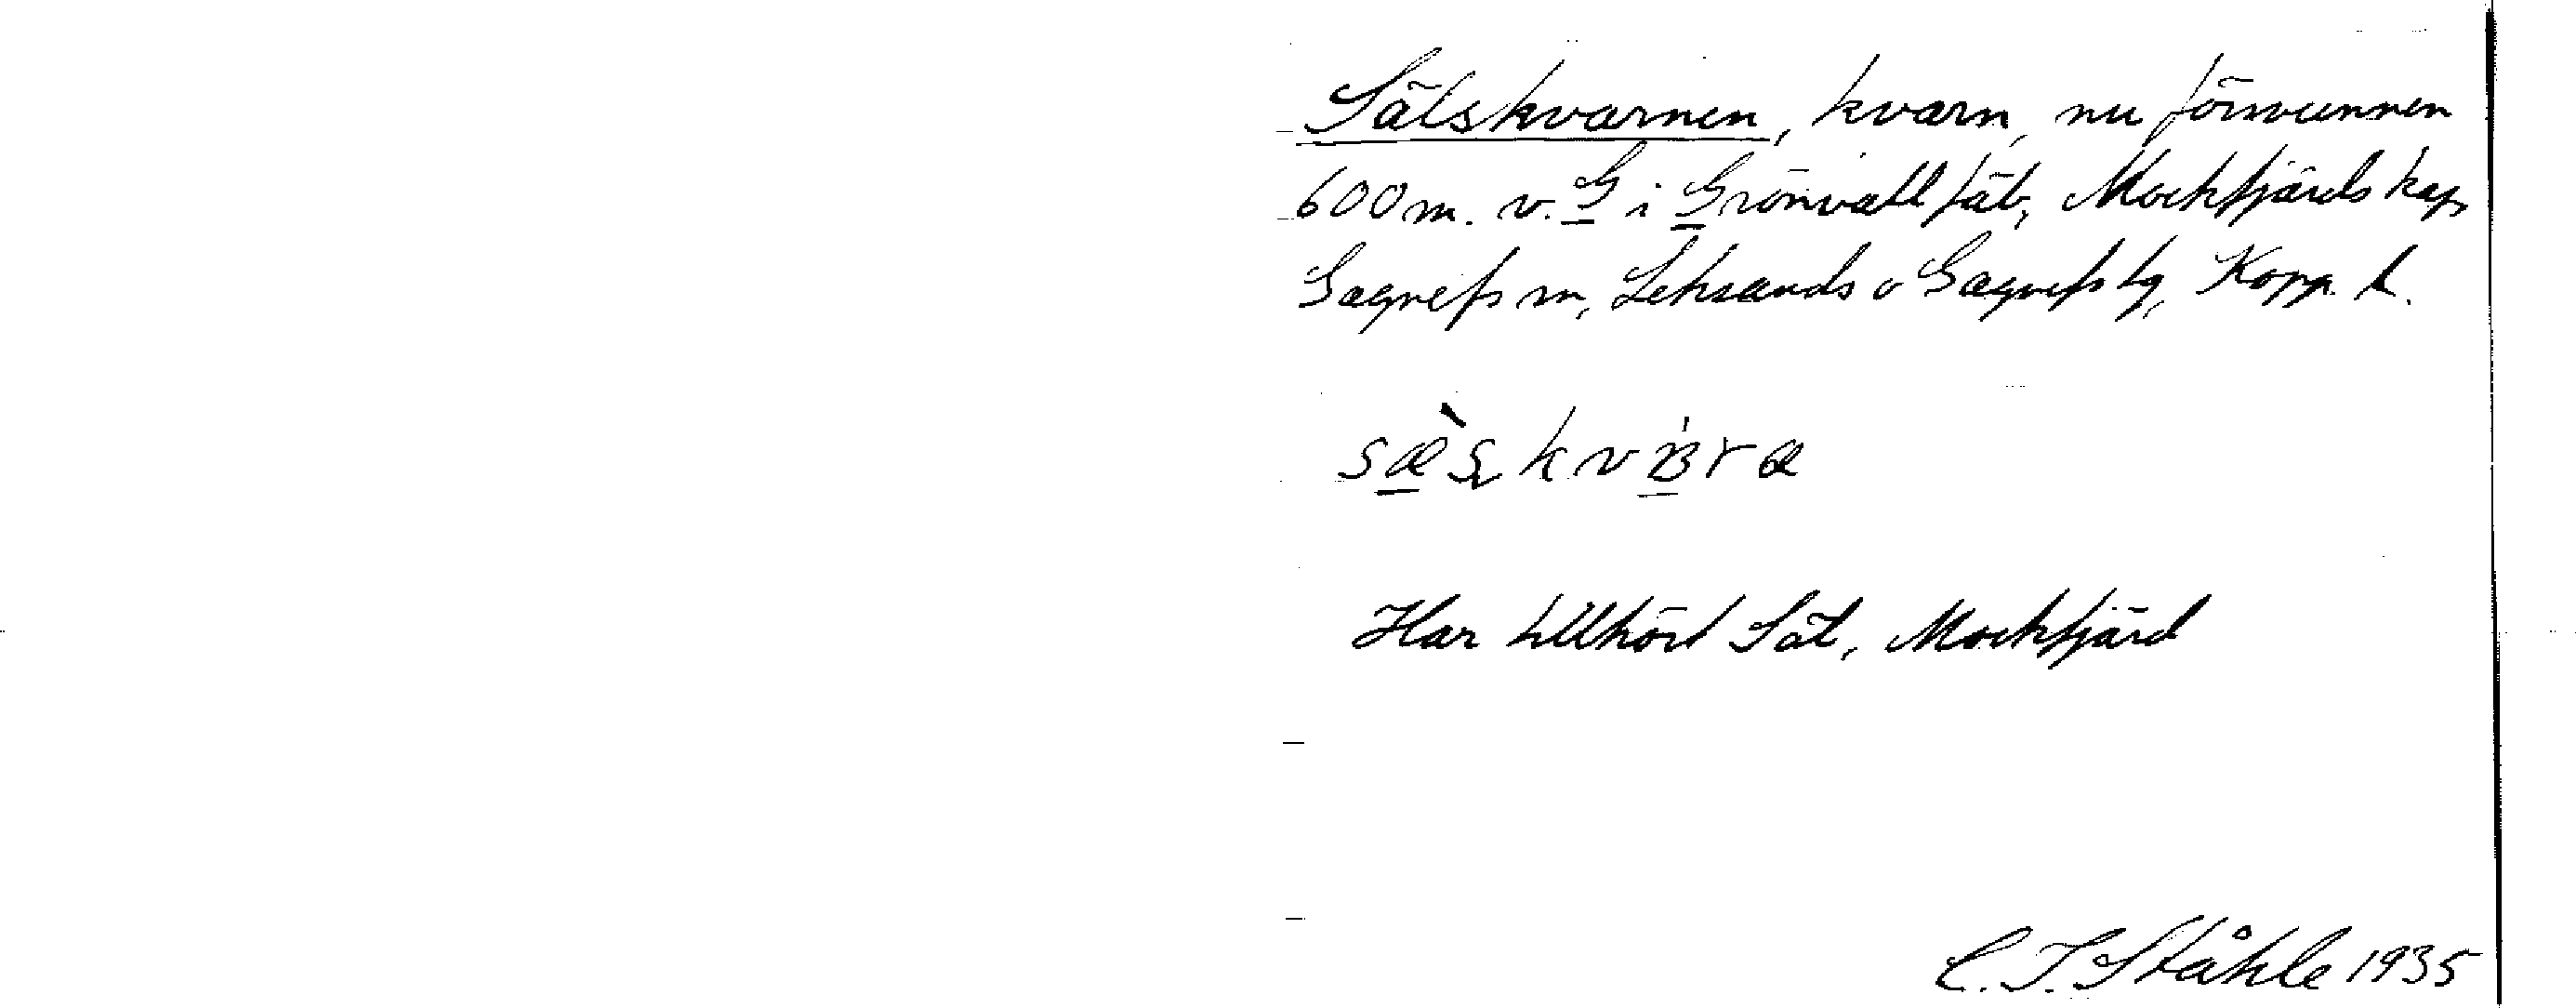 Sätskvarnen, kvarn, nu försvunnen
600 m. v. G i Grönvall fäb, Mockfjärds kap
Gagnefs sn, Leksands o Gagnefs tg, Kopp. l.
Har tillhört Sät, Mockfjärd
C. I. Ståhle 1935